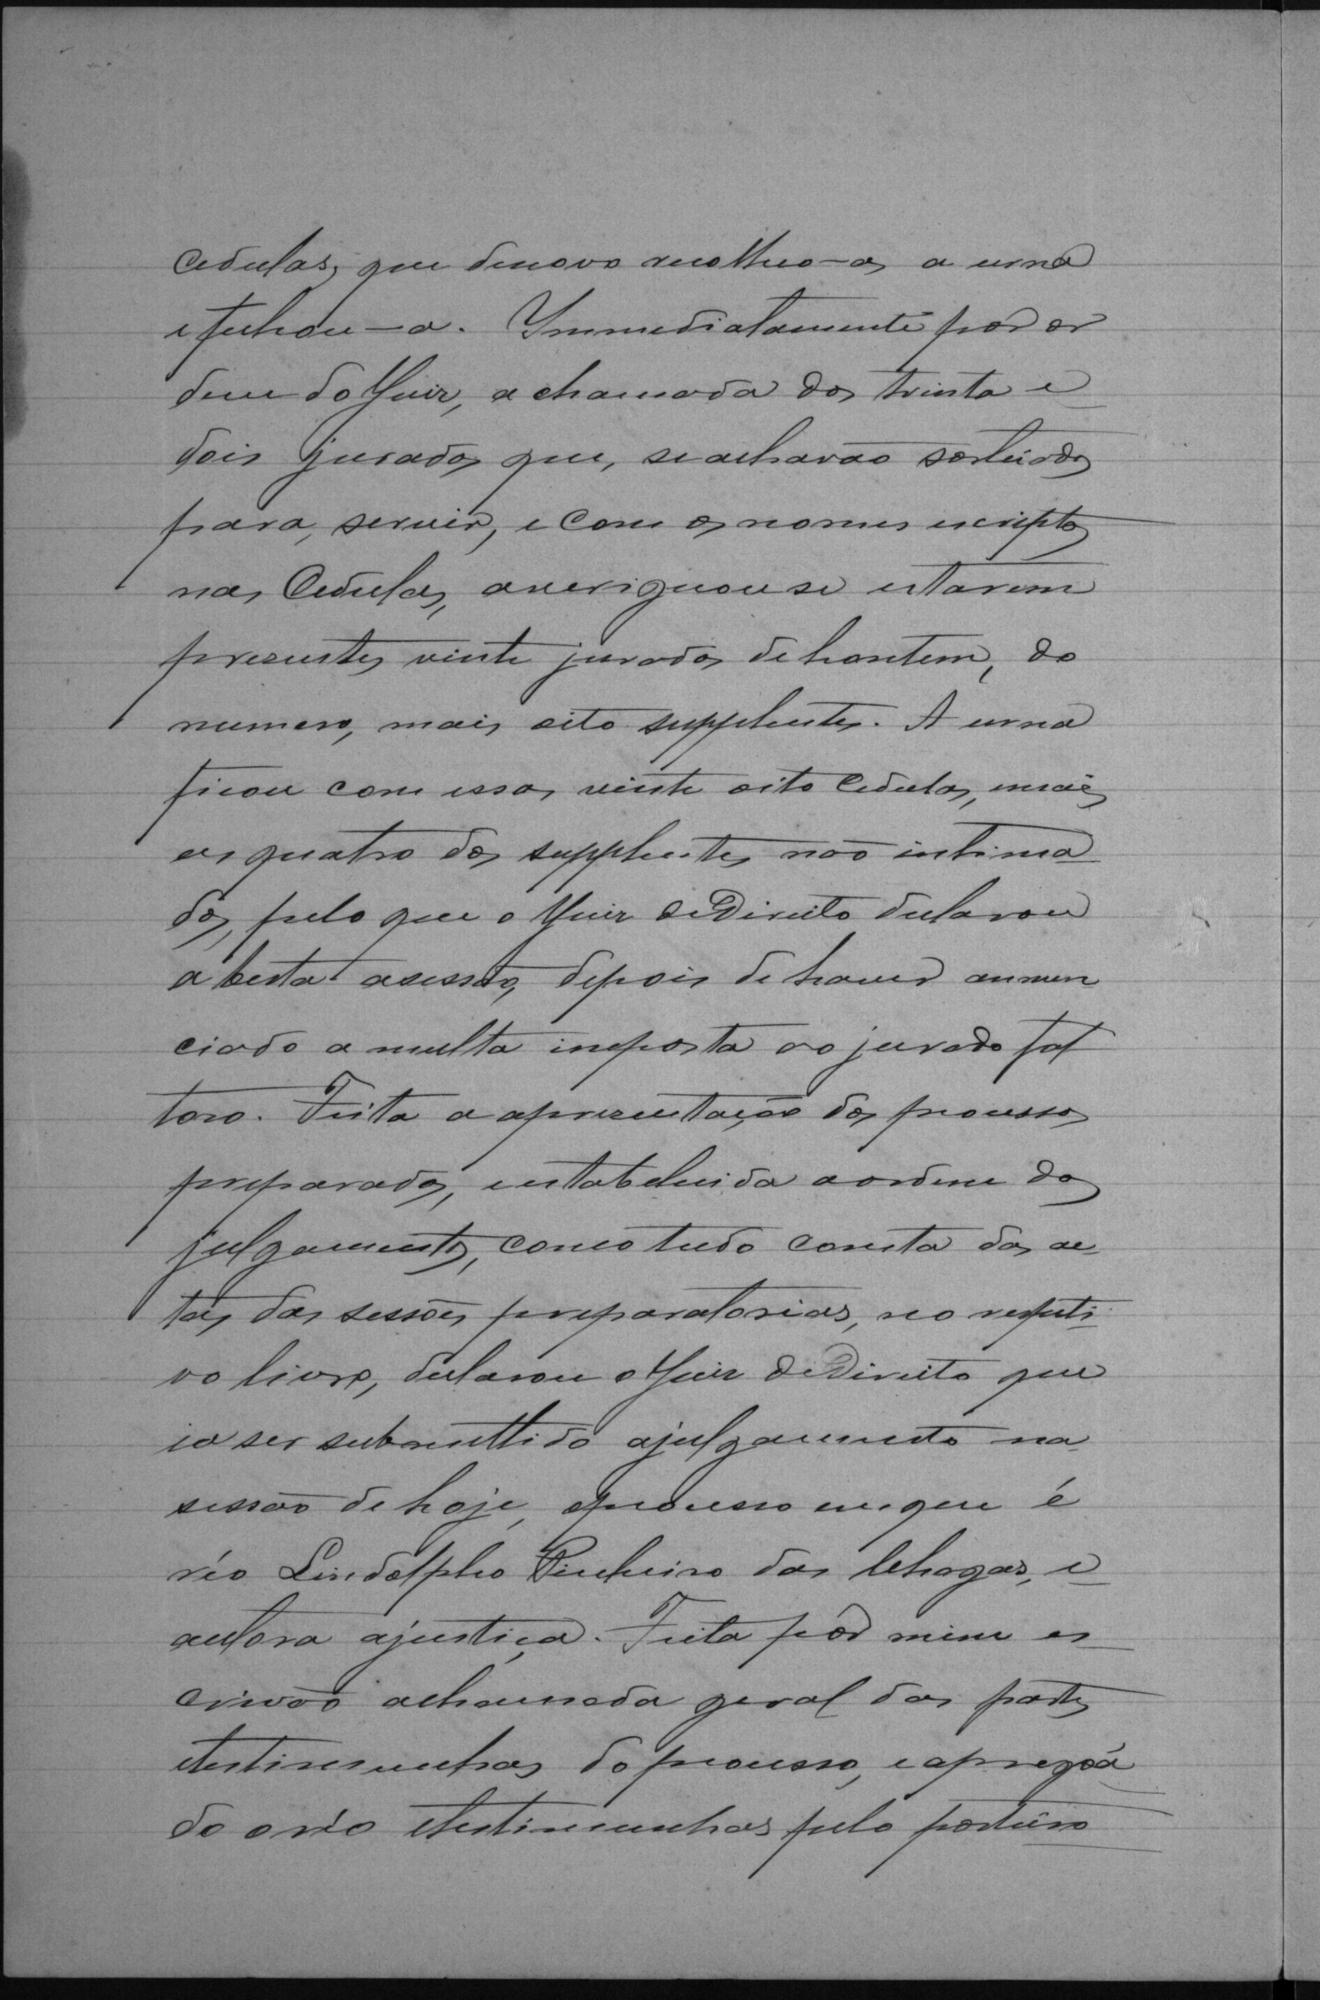 cedulas, que denovo recolheo-as a urna
e fechou-a. Immediatamente por or
dem do Juiz, a chamada dos trinta e
dois jurados que, se acharão sorteados
para, servir, e com os nomes escriptos
nas Cedulas, averiguou se estarem
presentes vinte jurados de hontem, do
numero, mais oito supplentes. A urna
ficou com essas vinte oito Cedulas, mais
as quatro dos supplentes não intima
dos, pelo que o Juiz de Direito declarou
aberta a sessão, depois de haver annun
ciado a multa imposta ao jurado fal
toso. Feita a apresentação dos processos
preparados, e estabelecida a ordem dos
julgamentos, como tudo consta das ac
tas das sessões preparatorias, no respecti
vo livro, declarou o Juiz de Direito que
ia ser submettido a julgamento na
sessão de hoje, o processo em que é
réo Lindolpho Pinheiro das Chagas, e
autora a justiça. Feita pôr mim es
crivão a chamada geral das partes
e testimunhas do processo, e apregoá
do o réo e testimunhas pelo porteiro